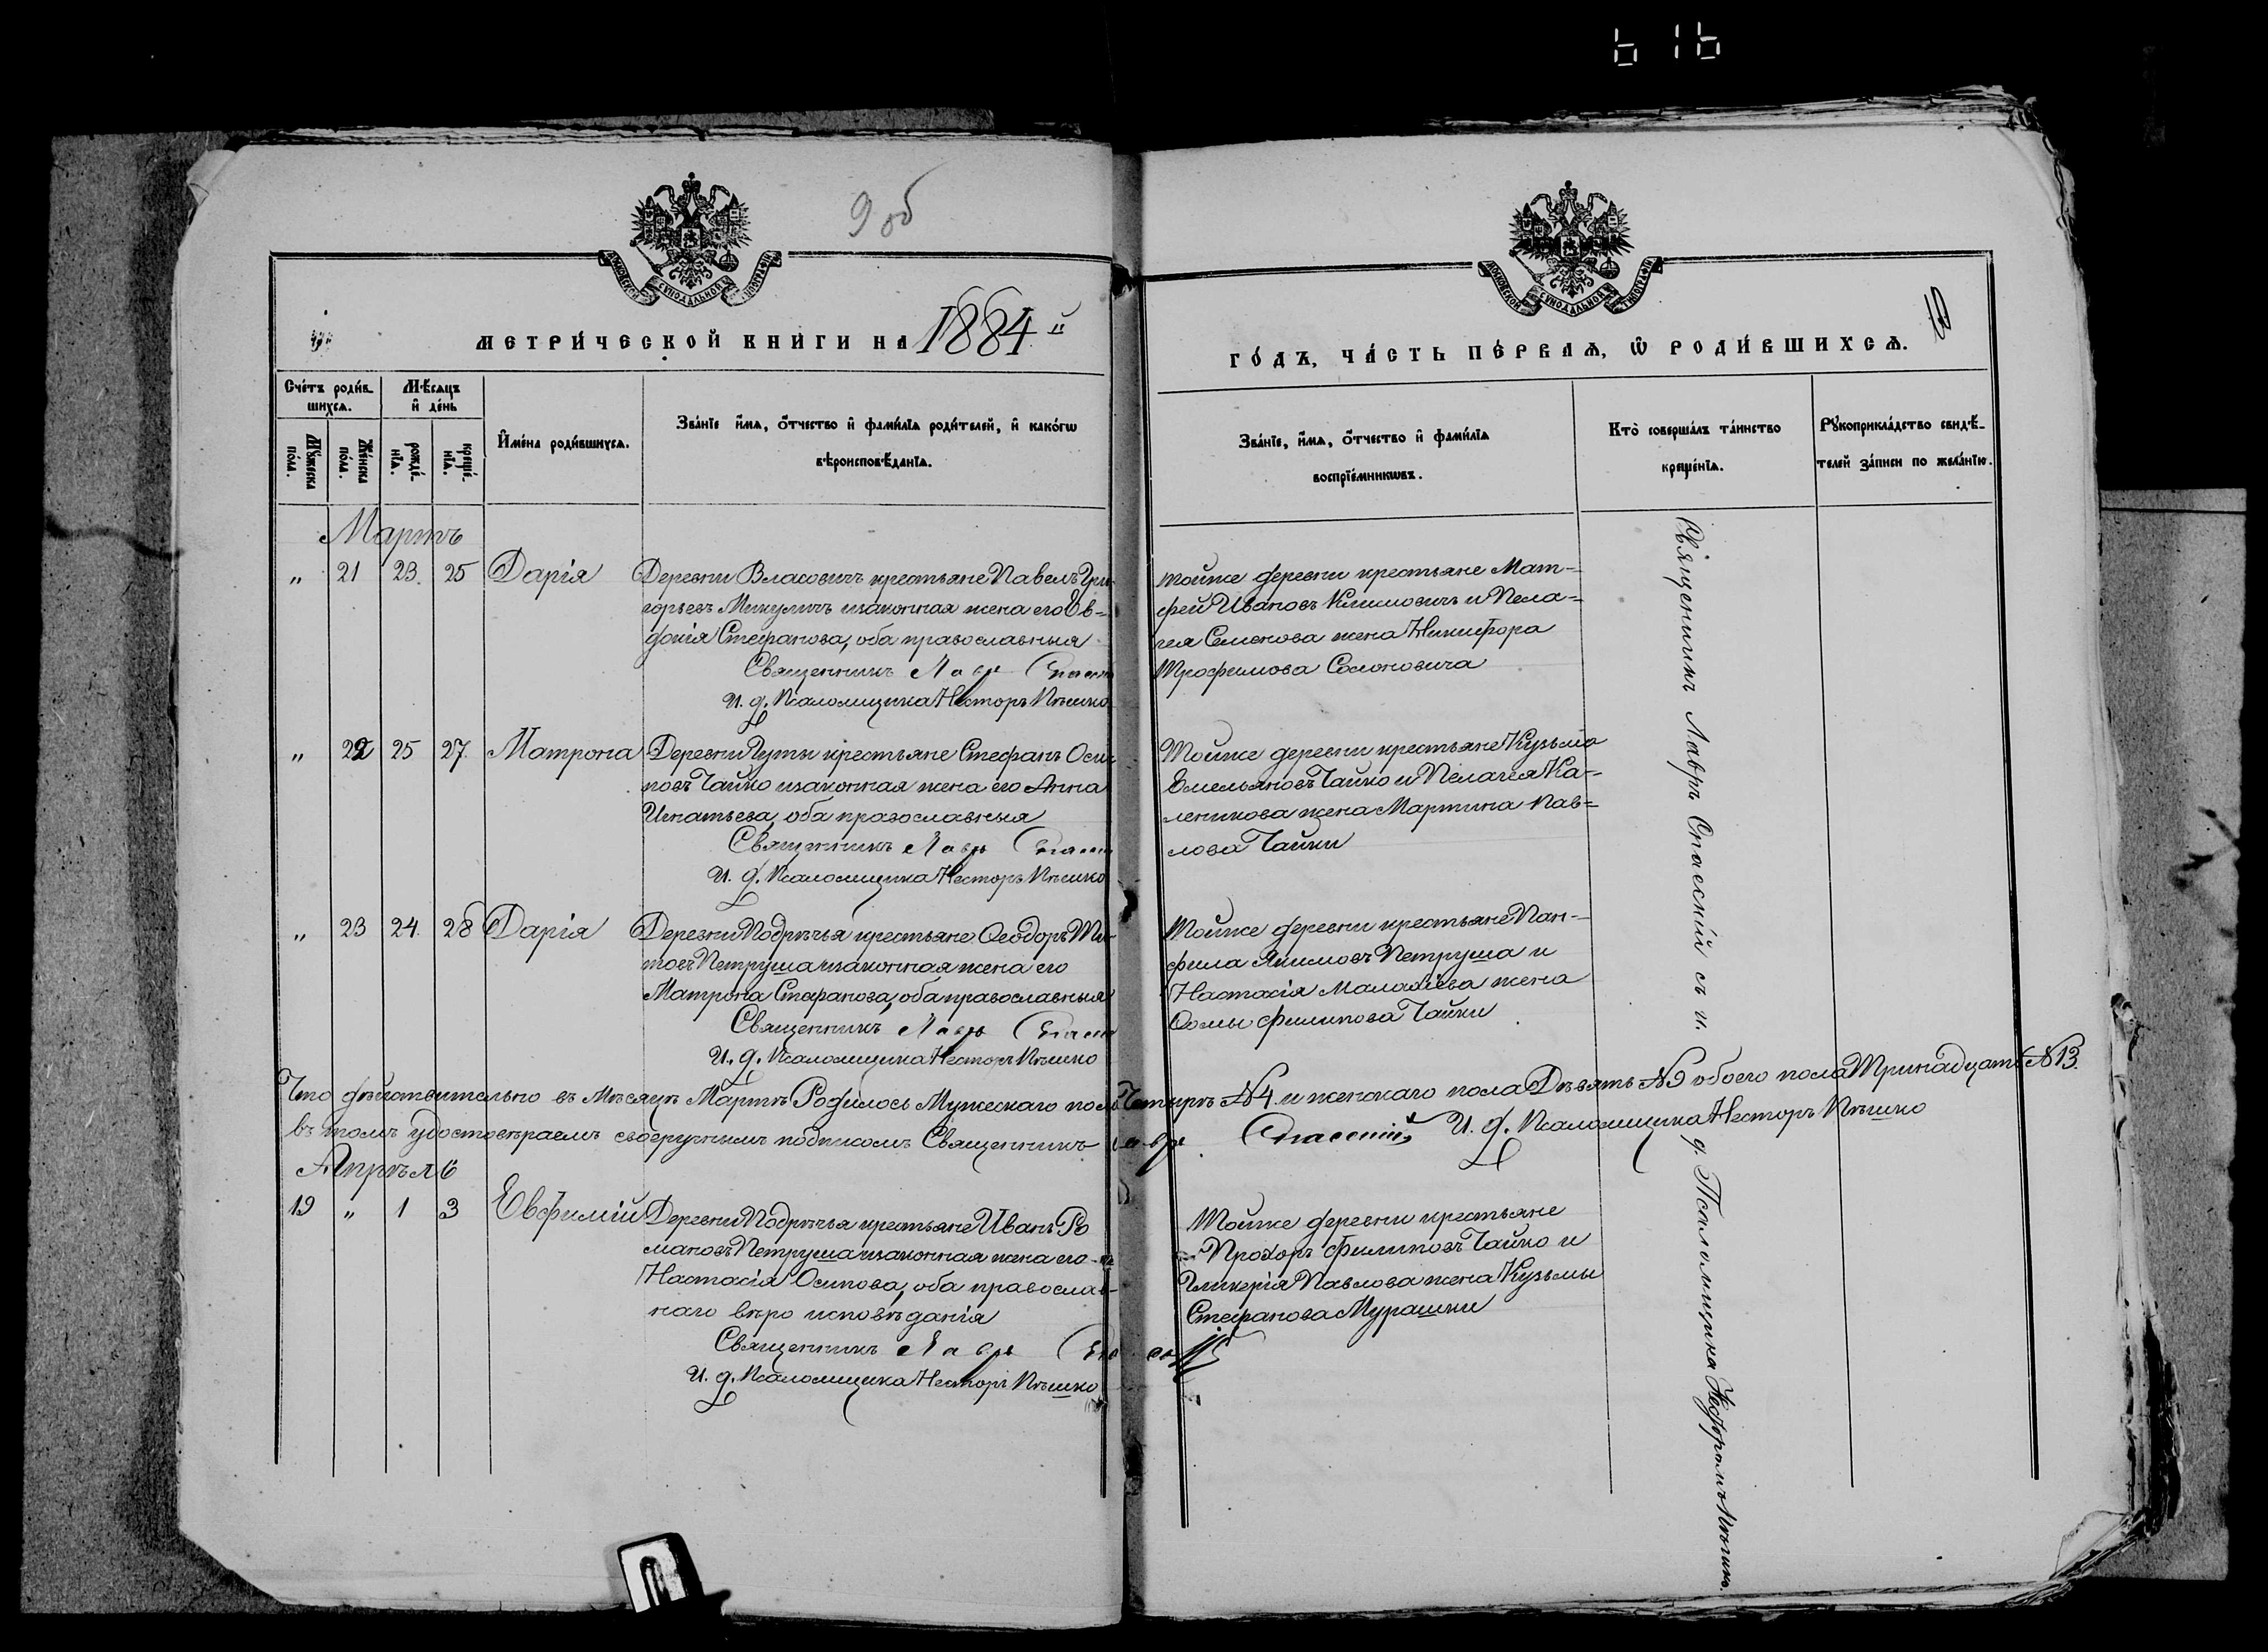 616
9 об
10
МОСКОВСКОЙ СУНОДАЛЬНОЙ ТИПОГРАФІИ
МОСКОВСКОЙ СУНОДАЛЬНОЙ ТИПОГРАФІИ
МЕТРИ́ЧЕСКОЙ КНИ́ГИ НА 1884й
ГО́ДЪ, ЧА́СТЬ ПЕ́РВАѦ, Ѡ РОДИ́ВШИХСѦ.
Сче́тъ роди́в-
шихсѧ.
Мѣ́сѧцъ
и де́нь
Мꙋ́жеска
по́ла.
Же́нска
по́ла.
рожде́-
нїѧ.
креще́-
нїѧ.
Имена̀ роди́вшихсѧ.
Зва́нїе имѧ, о́тчество и фами́лїѧ роди́телей, и како́гѡ
вѣроисповѣ́данїѧ.
Зва́нїе, имѧ, о́тчество и фами́лїѧ
воспрїе́мникѡвъ.
Кто̀ соверша́лъ та́инство
креще́нїѧ.
Рꙋкоприкла́дство свидѣ́-
телей за́писи по жела́нїю.
Мартъ
„ 21 23. 25 Дарія
Деревни Власовичъ крестьяне Павелъ Гри-
горьевъ Микуличъ изаконная жена его Ев=
докія Стефанова, оба православныя
Священникъ Лавръ Спасскій
И. д. Псаломщика Несторъ Пѣшко
тойже деревни крестьяне Мат-
фей Ивановъ Климовичъ и Пела=
гея Семенова жена Никифора
Трофимова Солоновича
„ 22 25 27. Матрона
Деревни Гуты крестьяне Стефанъ Оси-
повъ Чайко изаконная жена его Анна
Игнатьева, оба православныя
Священникъ Лавръ Спасскій
И. д. Псаломщика Несторъ Пѣшко
Тойже деревни крестьяне Кузьма
Емельяновъ Чайко и Пелагея Ка-
леникова жена Мартина Пав=
лова Чайки
„ 23 24. 28 Дарія
Деревни Подрѣчья крестьяне Ѳеодоръ Ти-
товъ Петруша изаконная жена его
Матрона Стефанова, оба православныя
Священникъ Лавръ Спасскій
И. д. Псаломщика Несторъ Пѣшко
Тойже деревни крестьяне Пан-
фила Якимовъ Петруша и
Настасія Малахіева жена
Ѳомы Филипова Чайки
Что дѣйствительно въ Мѣсяцѣ Мартѣ Родилось Мужескаго пола Четырѣ №4. и женскаго пола Дѣвять №9 обоего пола Тринадцать №13.
въ томъ удостовѣраемъ своеручнымъ подписомъ Священникъ Лавръ Спасскій И. д. Псаломщика Несторъ Пѣшко
Апрѣль
19 „ 1 3 Евфимій
Деревни Подрѣчья крестьяне Иванъ Ро
мановъ Петруша изаконная жена его
Настасія Осипова, оба православ-
наго вѣро исповѣданія
Священникъ Лавръ Спасскій
И. д. Псаломщика Несторъ Пѣшко
Тойже деревни крестьяне
Прохоръ Филиповъ Чайко и
Гликерія Павлова жена Кузьмы
Стефанова Мурашки
Священникъ Лавръ Спасскій съ и. д. Псаломщика Несторомъ Пѣшко.